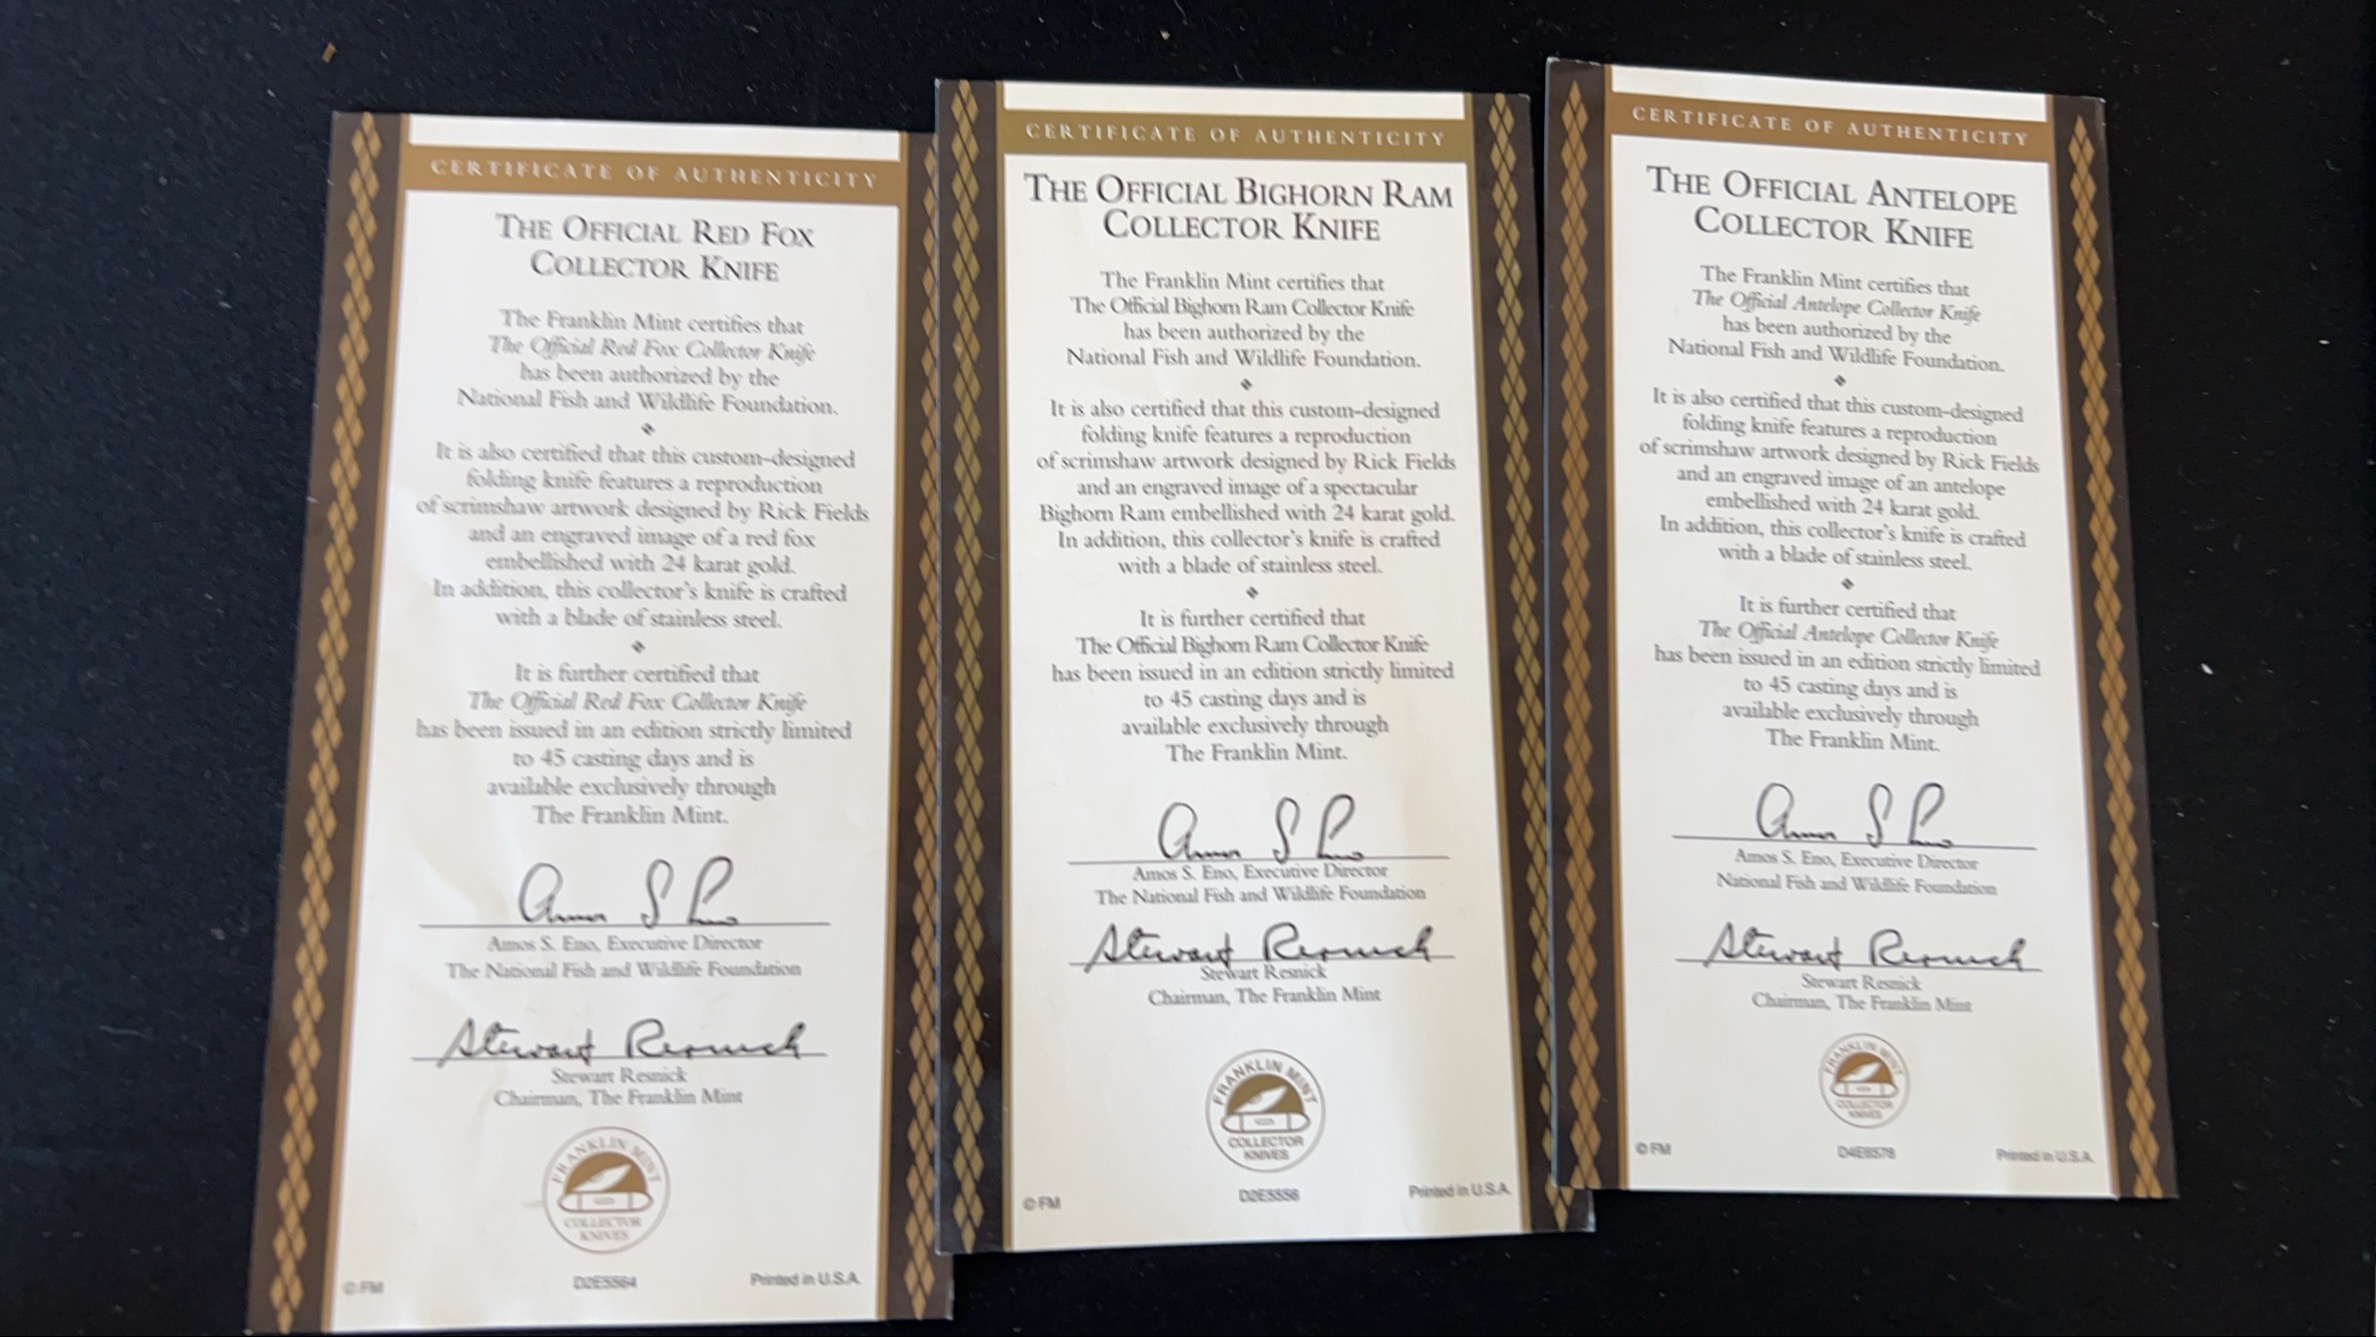 CERTIFICATE OF AUTHENTICITY
THE OFFICIAL RED FOX
COLLECTOR KNIFE
The Franklin Mint certifies that
The Official Red Fox Collector Knife
has been authorized by the
National Fish and Wildlife Foundation.
It is also certified that this custom-designed
folding knife features a reproduction
of scrimshaw artwork designed by Rick Fields
and an engraved image of a red fox
embellished with 24 karat gold.
In addition, this collector's knife is crafted
with a blade of stainless steel.
It is further certified that
The Official Red Fox Collector Knife
has been issued in an edition strictly limited
to 45 casting days and is
available exclusively through
The Franklin Mint.
Amos S. Eno, Executive Director
The National Fish and Wildlife Foundation
Stewart Resnick
Stewart Resnick
Chairman, The Franklin Mint
FRANKLIN MINT
COLLECTOR
KNIVES
© FM
D2E5564
Printed in U.S.A.
CERTIFICATE OF AUTHENTICITY
THE OFFICIAL BIGHORN RAM
COLLECTOR KNIFE
The Franklin Mint certifies that
The Official Bighorn Ram Collector Knife
has been authorized by the
National Fish and Wildlife Foundation.
It is also certified that this custom-designed
folding knife features a reproduction
of scrimshaw artwork designed by Rick Fields
and an engraved image of a spectacular
Bighorn Ram embellished with 24 karat gold.
In addition, this collector's knife is crafted
with a blade of stainless steel.
It is further certified that
The Official Bighorn Ram Collector Knife
has been issued in an edition strictly limited
to 45 casting days and is
available exclusively through
The Franklin Mint.
Amos S. Eno, Executive Director
The National Fish and Wildlife Foundation
Stewart Resnick
Stewart Resnick
Chairman, The Franklin Mint
FRANKLIN MINT
COLLECTOR
KNIVES
© FM
D2E5556
Printed in U.S.A.
CERTIFICATE OF AUTHENTICITY
THE OFFICIAL ANTELOPE
COLLECTOR KNIFE
The Franklin Mint certifies that
The Official Antelope Collector Knife
has been authorized by the
National Fish and Wildlife Foundation.
It is also certified that this custom-designed
folding knife features a reproduction
of scrimshaw artwork designed by Rick Fields
and an engraved image of an antelope
embellished with 24 karat gold.
In addition, this collector's knife is crafted
with a blade of stainless steel.
It is further certified that
The Official Antelope Collector Knife
has been issued in an edition strictly limited
to 45 casting days and is
available exclusively through
The Franklin Mint.
Amos S. Eno, Executive Director
National Fish and Wildlife Foundation
Stewart Resnick
Stewart Resnick
Chairman, The Franklin Mint
FRANKLIN MINT
COLLECTOR
KNIVES
© FM
D4E6578
Printed in U.S.A.